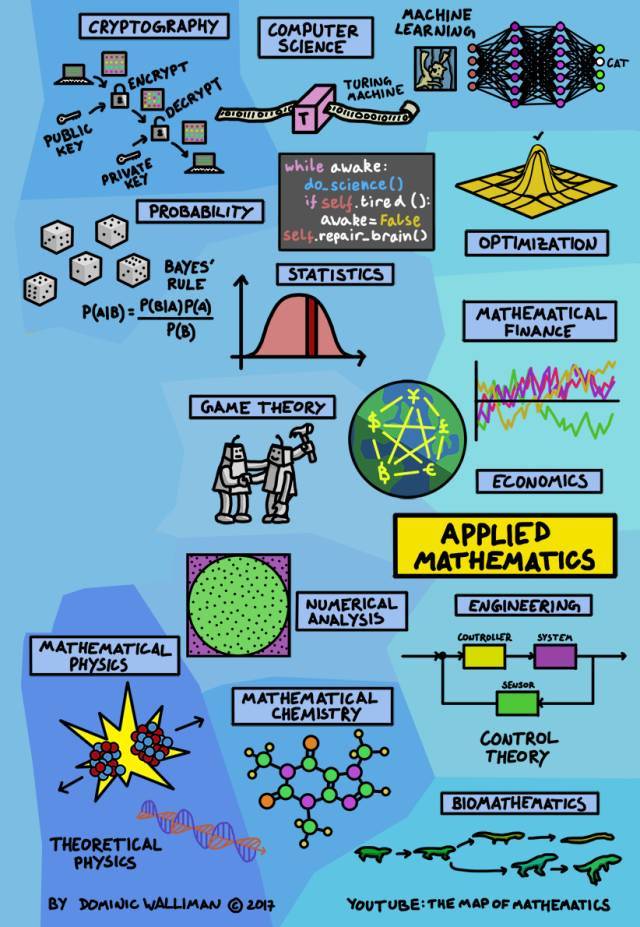 CRYPTOGRAPHY
COMPUTER
SCIENCE
MACHINE
LEARNING
CAT
ENCRYPT
DECRYPT
PUBLIC
KEY
PRIVATE
KEY
TURING
MACHINE
T
while awake:
do_science()
if self.tired():
awake=False
self.repair_brain()
OPTIMIZATION
PROBABILITY
BAYES'
RULE
P(A|B) = P(B|A)P(A)
P(B)
STATISTICS
MATHEMATICAL
FINANCE
GAME THEORY
¥
$
£
฿
€
ECONOMICS
APPLIED
MATHEMATICS
NUMERICAL
ANALYSIS
ENGINEERING
CONTROLLER
SYSTEM
SENSOR
CONTROL
THEORY
MATHEMATICAL
PHYSICS
MATHEMATICAL
CHEMISTRY
THEORETICAL
PHYSICS
BIOMATHEMATICS
BY DOMINIC WALLIMAN © 2017
YOUTUBE: THE MAP OF MATHEMATICS